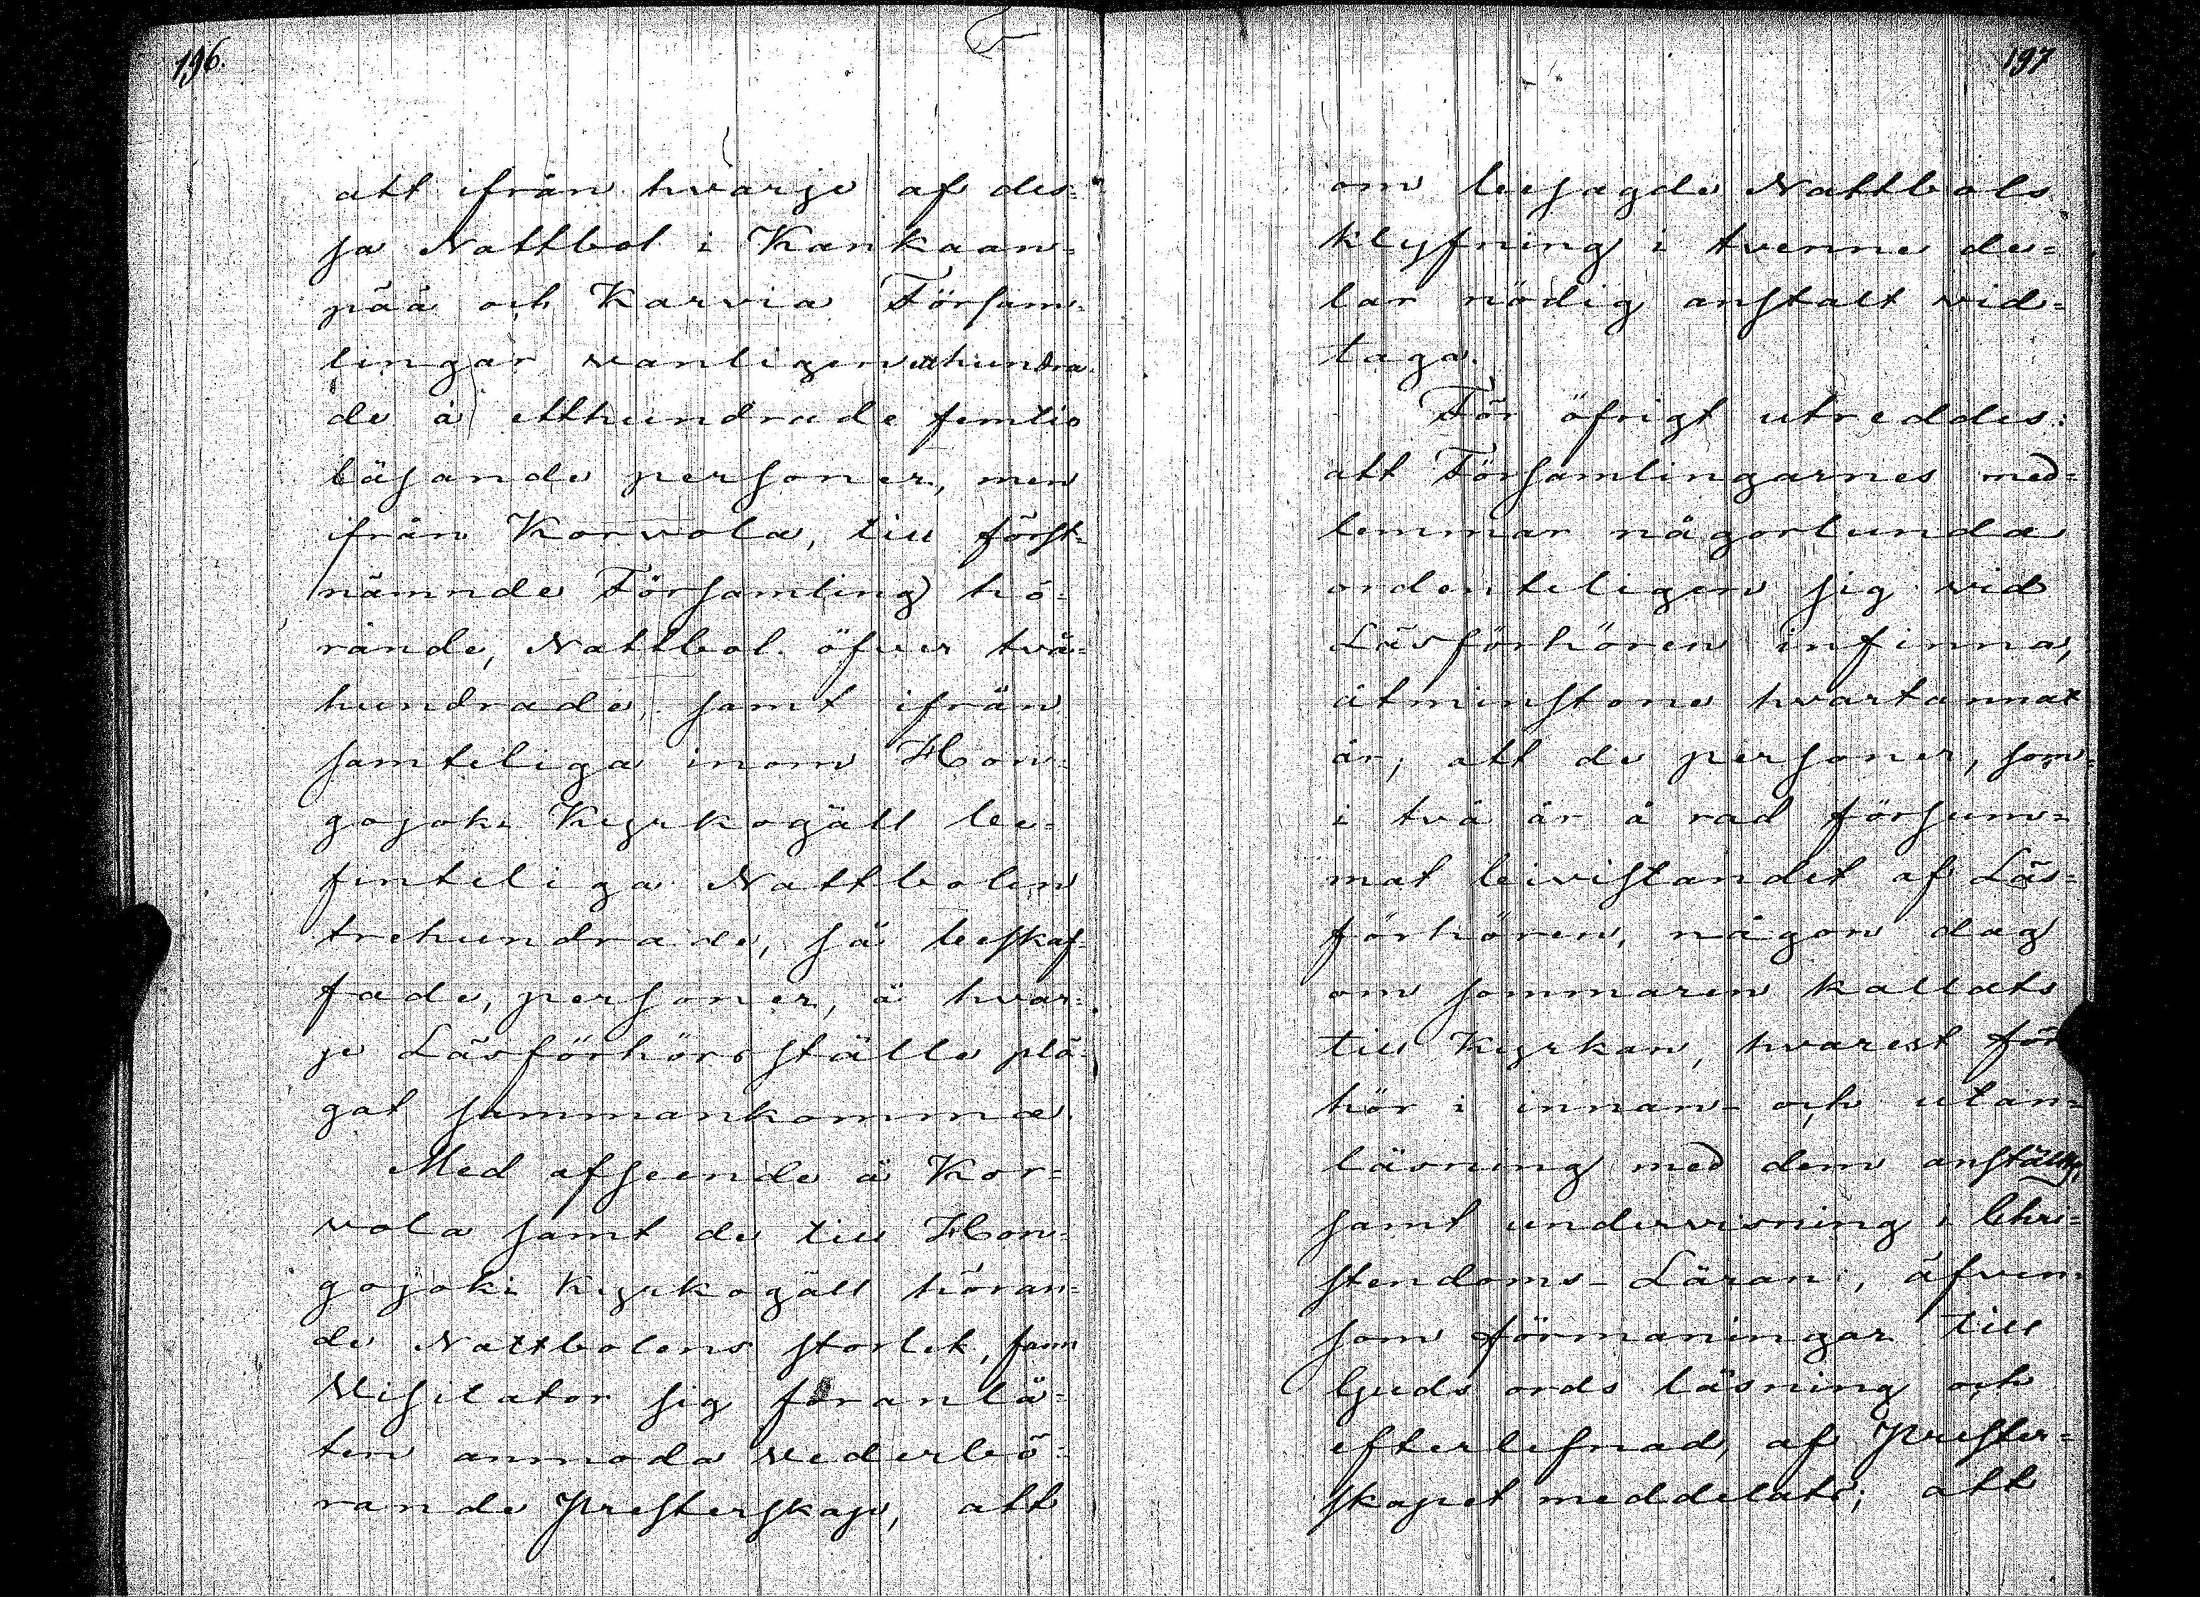 196.
att ifrån hvarje af des-
sa Nattbol i Kankaan-
pää och Karvia Försam-
lingar vanligen etthundra-
de à etthundrade femtio
läsande personer, men
ifrån Korvola, till först-
nämnde Församling hö-
rande, Nattbol öfver två-
hundrade, samt ifrån
samteliga inom Hon-
gojoki Kyrkogäll be-
finteliga Nattbolen
trehundrade, så beskaf-
fade, personer, å hvar-
je Läsförhörsställe plä-
gat sammankomma.
Med afseende å Kor-
vola samt de till Hon-
gojoki Kyrkogäll höran-
de Nattbolens storlek, fann
Visitator sig föranlå-
ten anmoda vederbö-
rande Presterskap, att
197
om besagde Nattbols
klyfning i tvenne de-
lar nödig anstalt vid-
taga.
För öfrigt utreddes:
att Församlingarnes med-
lemmar någorlunda
ordenteligen sig vid
Läsförhören infinna,
åtminstone hvartannat
år; att de personer, som
i två år å rad försum-
mat bivistandet af Läs-
förhören, någon dag
om sommaren kallats
till Kyrkan, hvarest för
hör i innan- och utan-
läsning med dem anställts,
samt undervisning i Chri-
stendoms-Läran, äfven-
som förmaningar till
Guds ords läsning och
efterlefnad, af Prester-
skapet meddelats; att